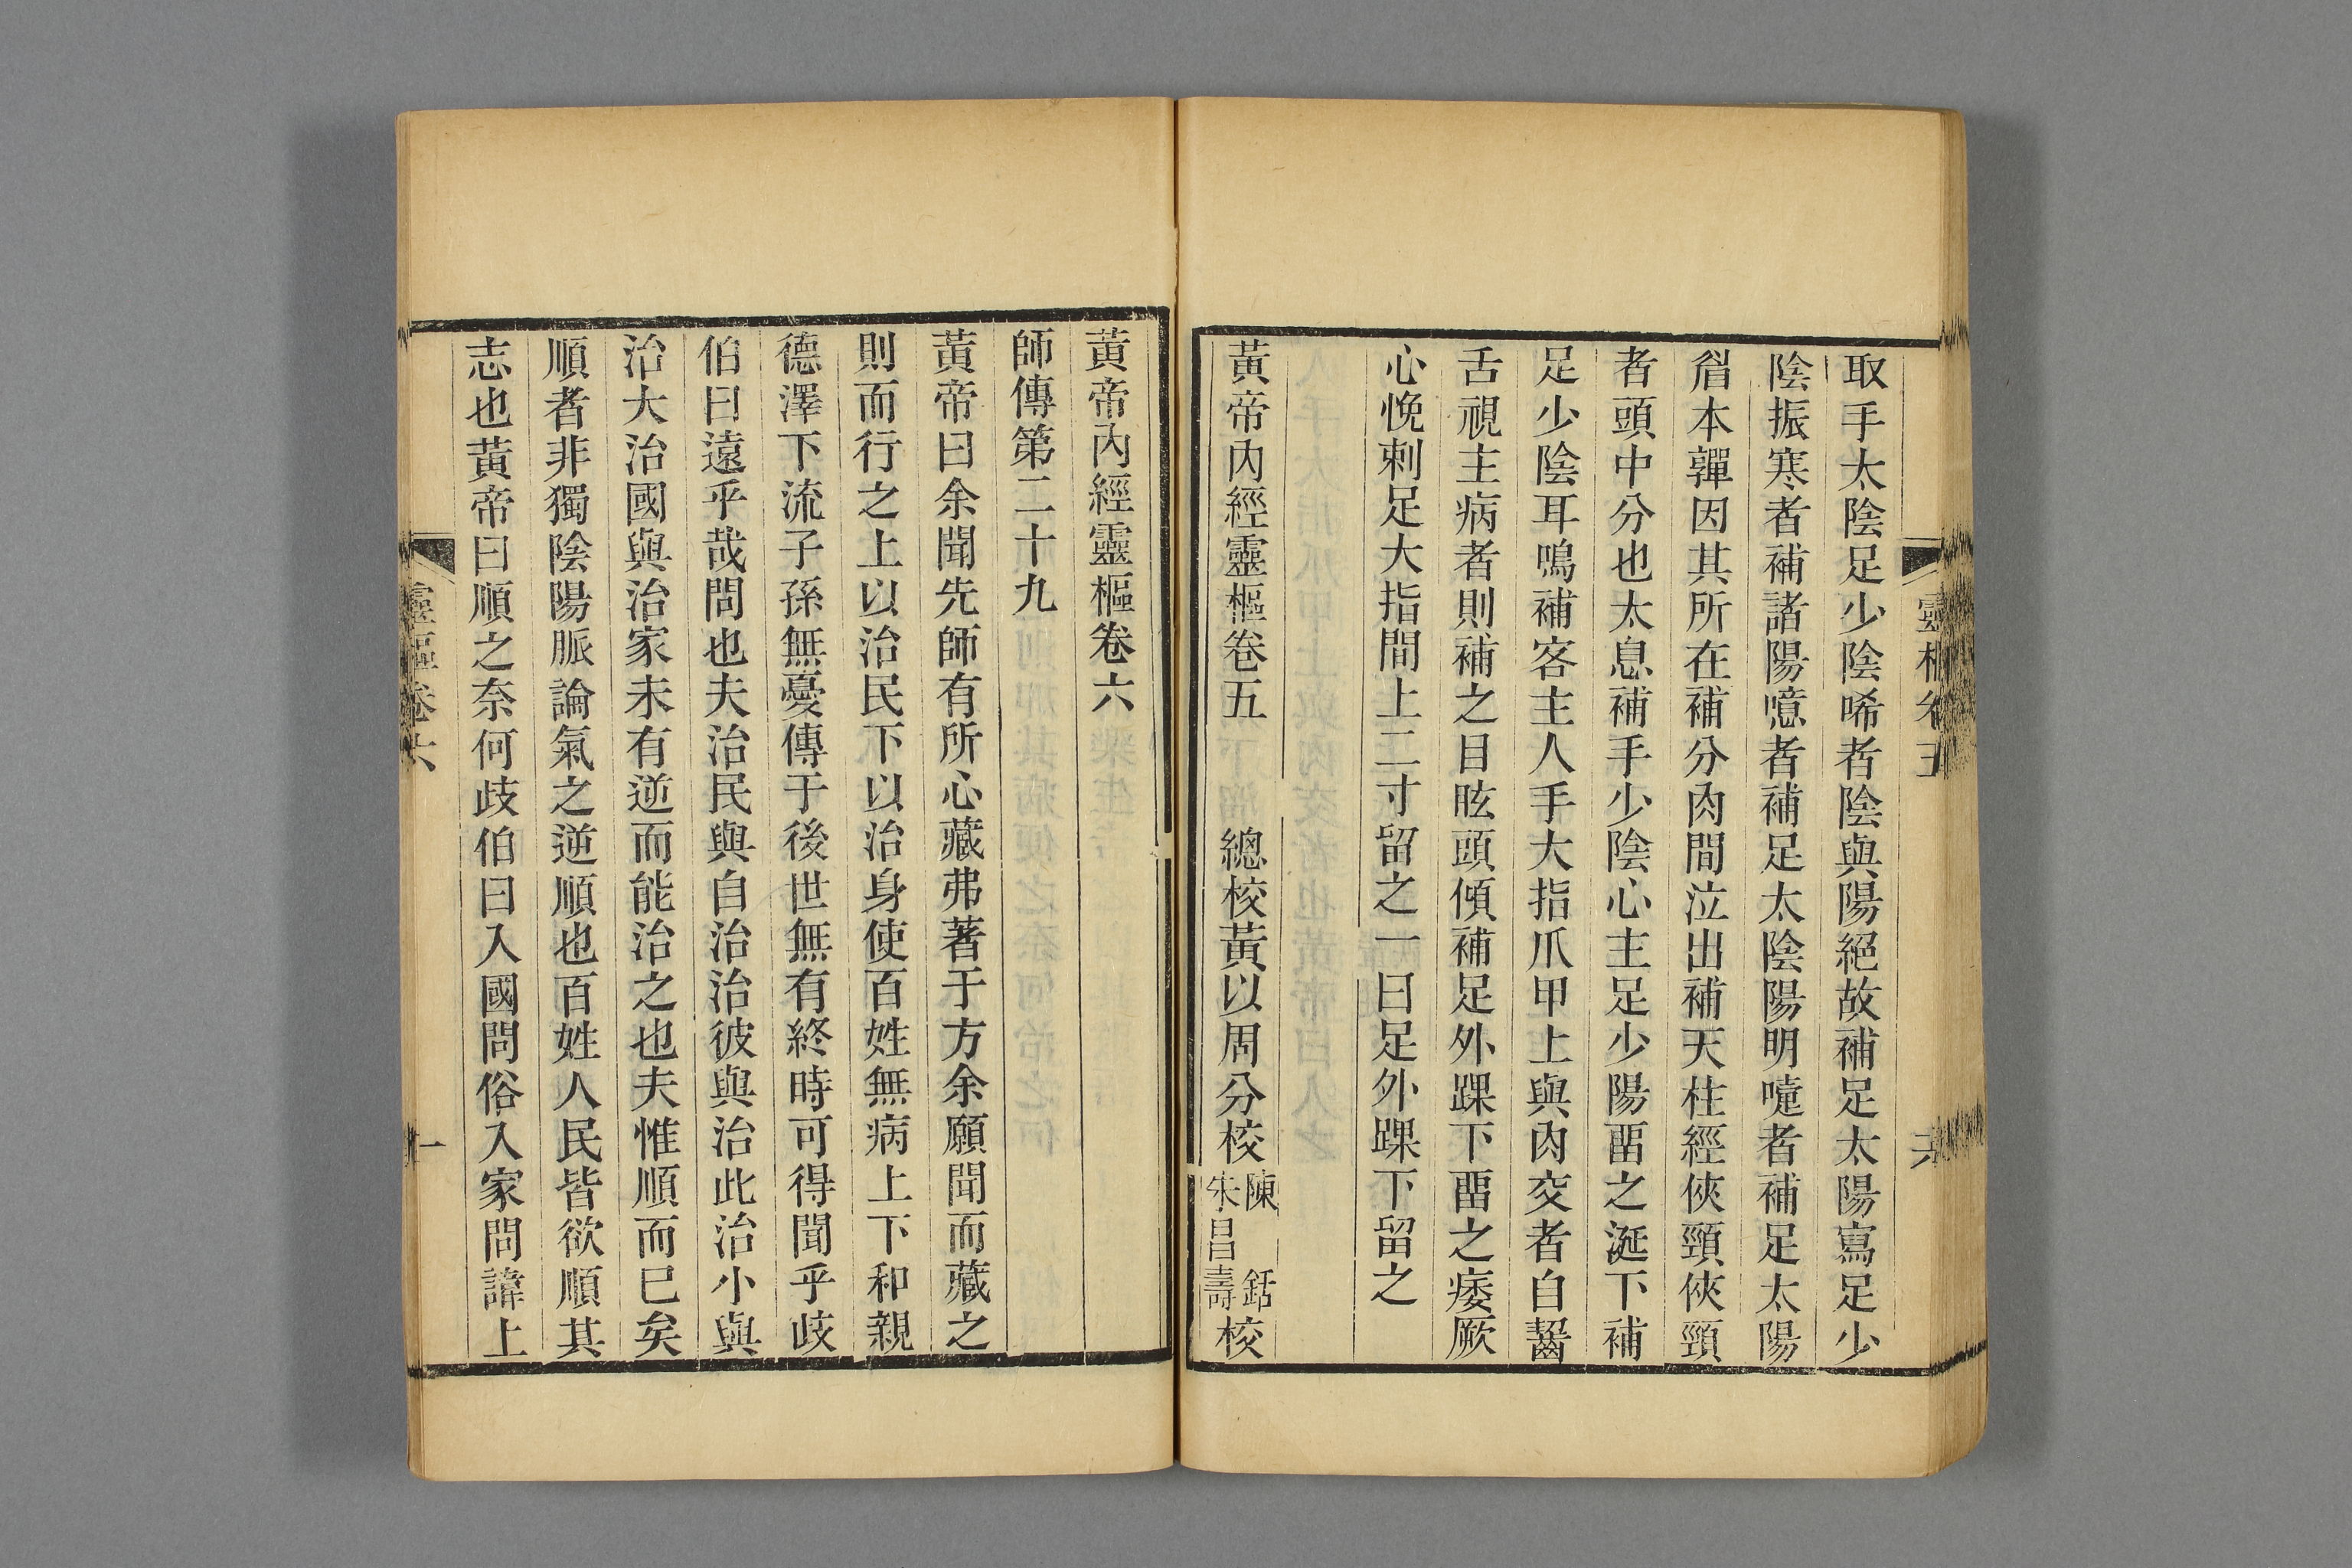 靈樞卷五
六
取手太陰足少陰唏者陰與陽絕故補足太陽寫足少
陰振寒者補諸陽噫者補足太陰陽明嚏者補足太陽
眉本嚲因其所在補分肉間泣出補天柱經俠頸俠頸
者頭中分也太息補手少陰心主足少陽畱之涎下補
足少陰耳鳴補客主人手大指爪甲上與肉交者自齧
舌視主病者則補之目眩頭傾補足外踝下畱之痿厥
心悗刺足大指間上二寸留之一曰足外踝下留之
黃帝內經靈樞卷五 總校黃以周分校陳 銛 朱昌壽校
黃帝內經靈樞卷六
師傳第二十九
黃帝曰余聞先師有所心藏弗著于方余願聞而藏之
則而行之上以治民下以治身使百姓無病上下和親
德澤下流子孫無憂傳于後世無有終時可得聞乎歧
伯曰遠乎哉問也夫治民與自治治彼與治此治小與
治大治國與治家未有逆而能治之也夫惟順而已矣
順者非獨陰陽脈論氣之逆順也百姓人民皆欲順其
志也黃帝曰順之奈何歧伯曰入國問俗入家問諱上
靈樞卷六
一